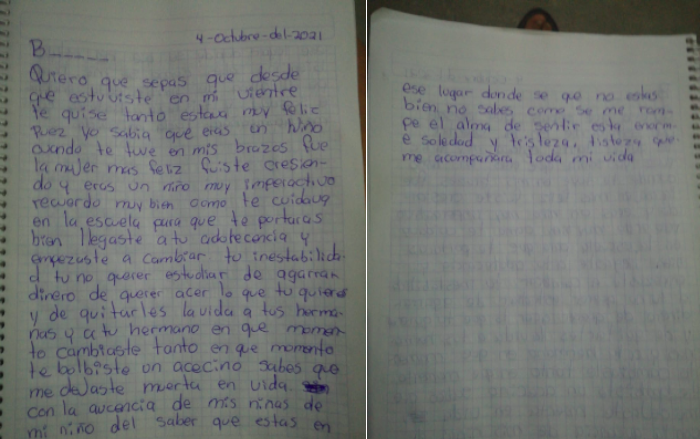 4-Octubre-del-2021
B______
Quiero que sepas que desde
que estuviste en mi vientre
te quise tanto estava muy felic
Puez yo sabia que eras un niño
cuando te tuve en mis brazos fue
la mujer mas feliz fuiste cresien-
do y eras un niño muy imperactivo
recuerdo muy bien como te cuidava
en la escuela para que te portaras
bien llegaste a tu adolecencia y
empezaste a cambiar tu inestabilida-
d tu no querer estudiar de agarrar
dinero de querer acer lo que tu quieres
y de quitarles la vida a tus herma-
nas y a tu hermano en que momen-
to cambiaste tanto en que momento
te bolbiste un acecino sabes que
me dejaste muerta en vida
con la aucencia de mis niñas de
mi niño del saber que estas en
ese lugar donde se que no estas
bien no sabes como se me rom-
pe el alma de sentir esta enorm-
e soledad y tristeza, tisteza que
me acompañara toda mi vida